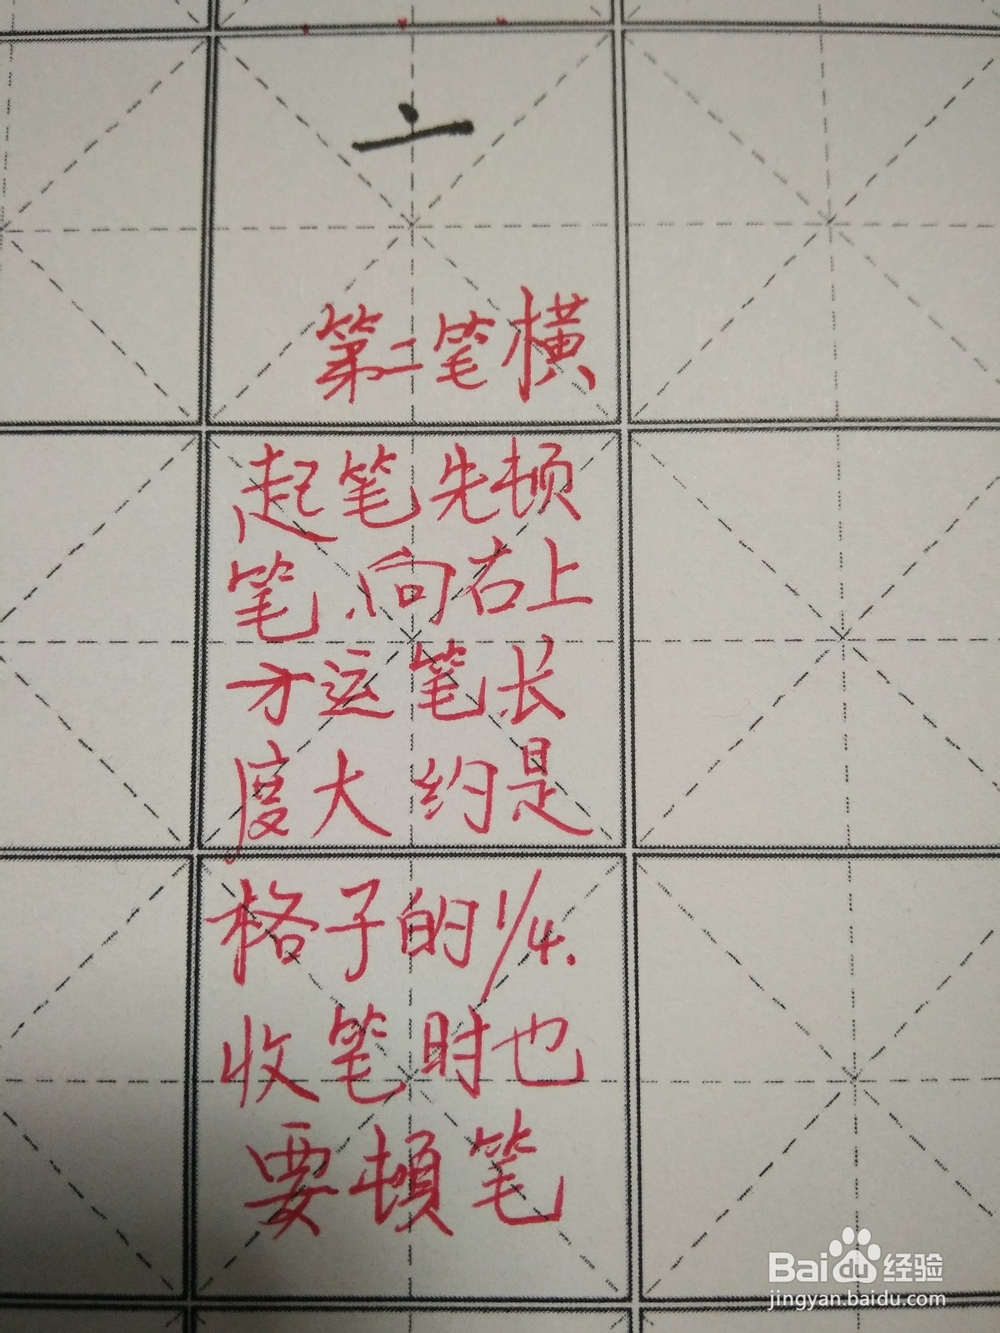 亠
第二笔横
起笔先顿
笔、向右上
方运笔长
度大约是
格子的1/4.
收笔时也
要頓笔
Baidu经验
jingyan.baidu.com